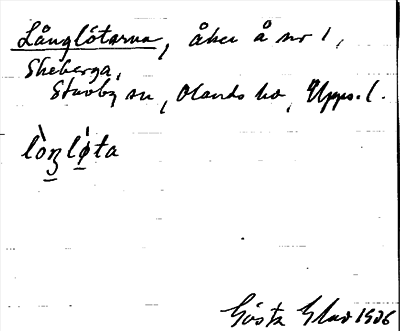 Långlötarna, åker å nr 1,
Skeberga,
Stavby sn, Olands hd, Upps. l.
lòŋlø̀ta
Gösta Glad 1936